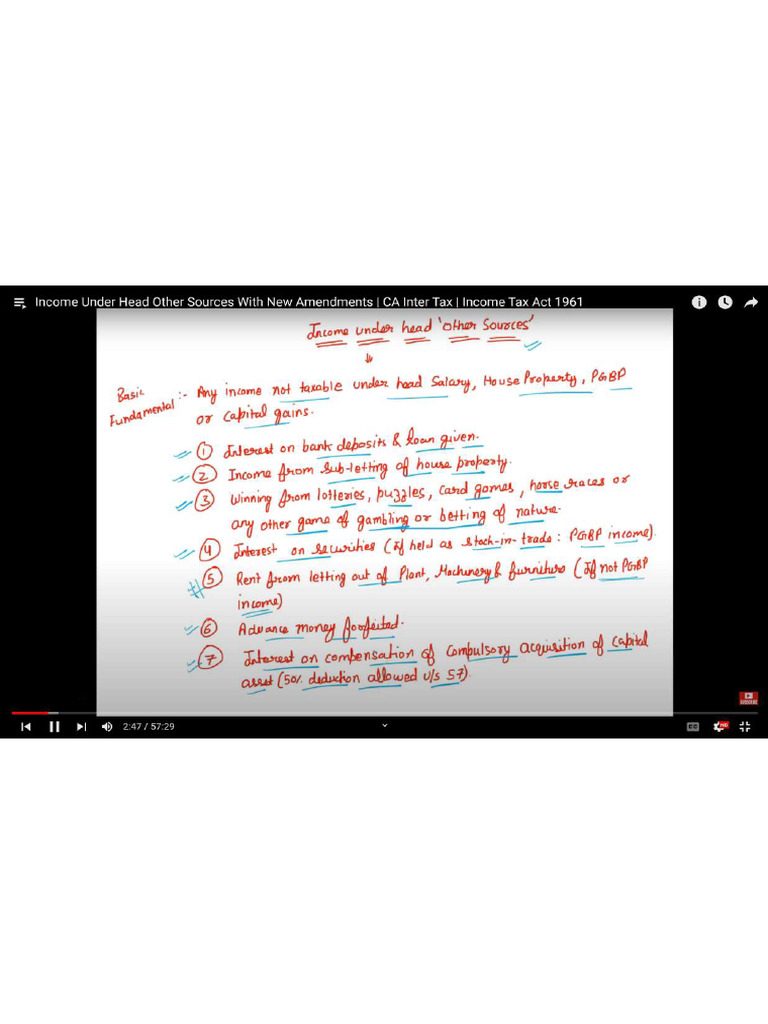 Income Under Head Other Sources With New Amendments | CA Inter Tax | Income Tax Act 1961
Income under head 'Other Sources'
Basic Fundamental :- Any income not taxable under head Salary, House Property, PGBP
or capital gains.
① Interest on bank deposits & loan given.
② Income from sub-letting of house property.
③ Winning from lotteries, puzzles, card games, horse races or
any other game of gambling or betting of nature.
④ Interest on securities (if held as stock-in-trade: PGBP income).
⑤ Rent from letting out of Plant, Machinery & furniture (If not PGBP
income)
⑥ Advance money forfeited.
⑦ Interest on compensation of compulsory acquisition of capital
asset (50% deduction allowed u/s 57).
SUBSCRIBE
2:47 / 57:29
CC
HD